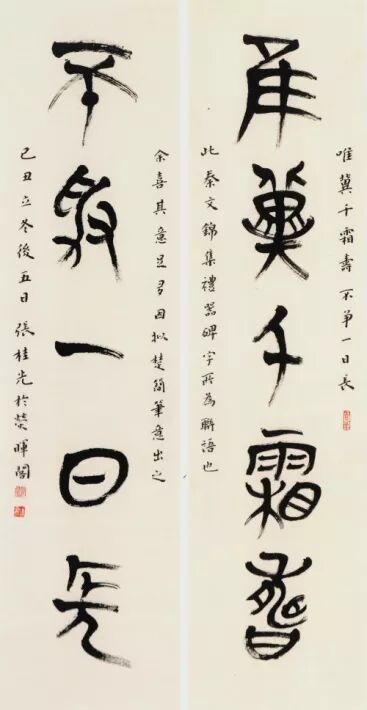 唯冀千霜壽 不爭一日長
唯冀千霜壽
此秦文錦集禮器碑字所為聯語也
余喜其意足多因擬楚簡筆意出之
不爭一日長
己丑立冬後五日 張桂光於暉閣